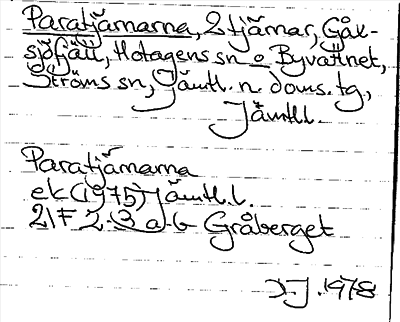 Paratjärnarna, 2 tjärnar, Gåx-
sjöfjäll, Hotagens sn o Byvattnet,
Ströms sn, Jämtl. n. doms. tg,
Jämtl.l.
Paratjärnarna
ek (1975) Jämtl. l.
21F 2-3 a-b Gråberget
DJ. 1978